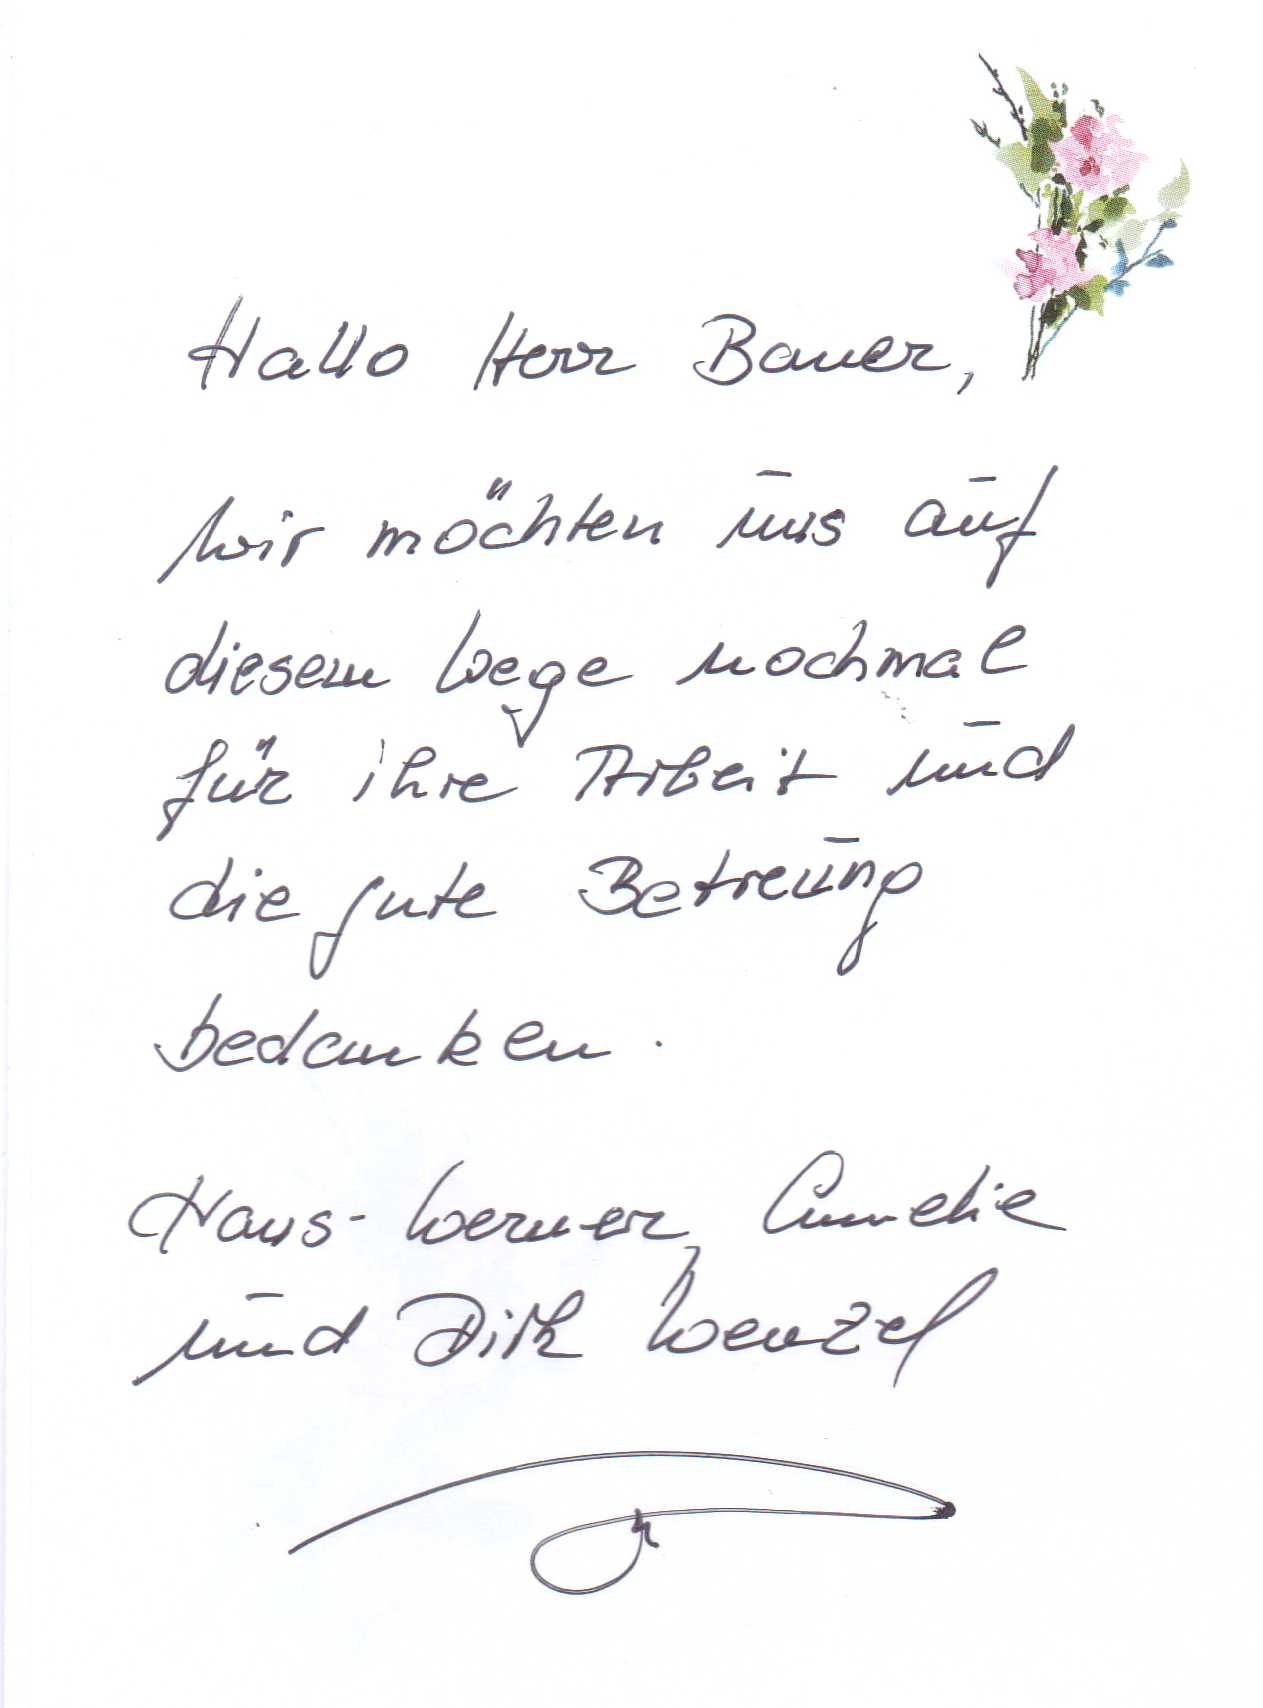 Hallo Herr Bauer,
wir möchten uns auf
diesem Wege nochmal
für ihre Arbeit und
die gute Betreung
bedanken.
Hans-Werner, Annelie
und Dirk Wenzel